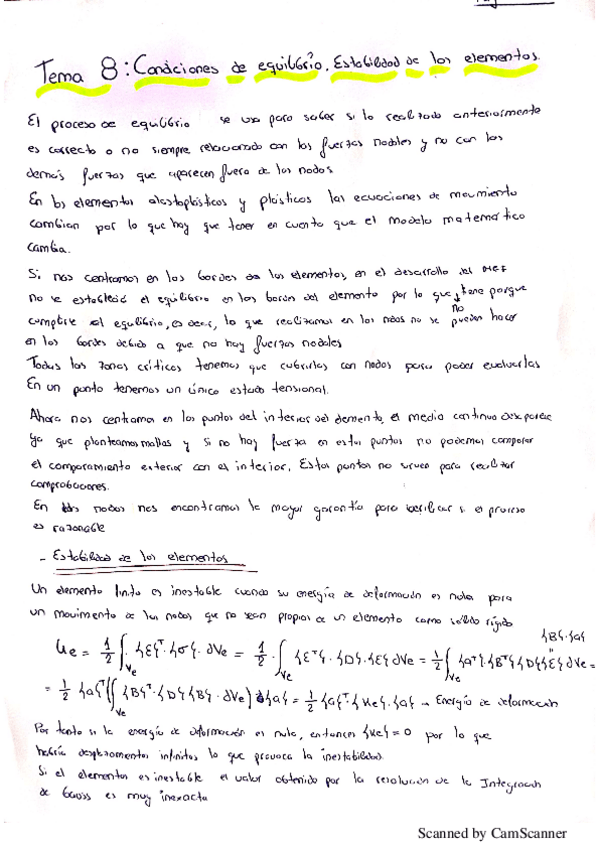 Tema 8: Condiciones de equilibrio. Estabilidad de los elementos.
El proceso de equilibrio se usa para saber si lo realizado anteriormente
es correcto o no siempre relacionado con las fuerzas nodales y no con las
demás fuerzas que aparecen fuera de los nodos
En los elementos elastoplásticos y plásticos las ecuaciones de movimiento
cambian por lo que hay que tener en cuenta que el modelo matemático
cambia.
Si nos centramos en los bordes de los elementos, en el desarrollo del MEF
no se estableció el equilibrio en los bordes del elemento por lo que no tiene porque
cumplirse el equilibrio, es decir, lo que realizamos en los nodos no se pueden hacer
en los bordes debido a que no hay fuerzas nodales
Todas las zonas críticas tenemos que cubrirlas con nodos para poder evaluarlas
En un punto tenemos un único estado tensional.
Ahora nos centramos en los puntos del interior del elemento, el medio continuo desaparece
ya que planteamos mallas y si no hay fuerza en estos puntos no podemos comparar
el comportamiento exterior con el interior. Estos puntos no sirven para realizar
comprobaciones.
En los nodos nos encontramos la mayor garantía para verificar si el proceso
es razonable
- Estabilidad de los elementos
Un elemento finito es inestable cuando su energía de deformación es nula para
un movimiento de los nodos que no sean propios de un elemento como sólido rígido
{B}·{a}
Ue = 1/2 ∫Ve {ε}ᵀ·{σ}·dVe = 1/2·∫Ve {εᵀ}·{D}·{ε} dVe = 1/2 ∫Ve {aᵀ}·{Bᵀ}{D}{ε} dVe =
= 1/2 {a}ᵀ(∫Ve {B}ᵀ·{D}{B}·dVe){a} = 1/2 {a}ᵀ·{Ke}·{a} → Energía de deformación
Por tanto si la energía de deformación es nula, entonces {Ke} = 0 por lo que
habría desplazamientos infinitos lo que provoca la inestabilidad.
Si el elementos es inestable el valor obtenido por la resolución de la Integración
de Gauss es muy inexacta
Scanned by CamScanner